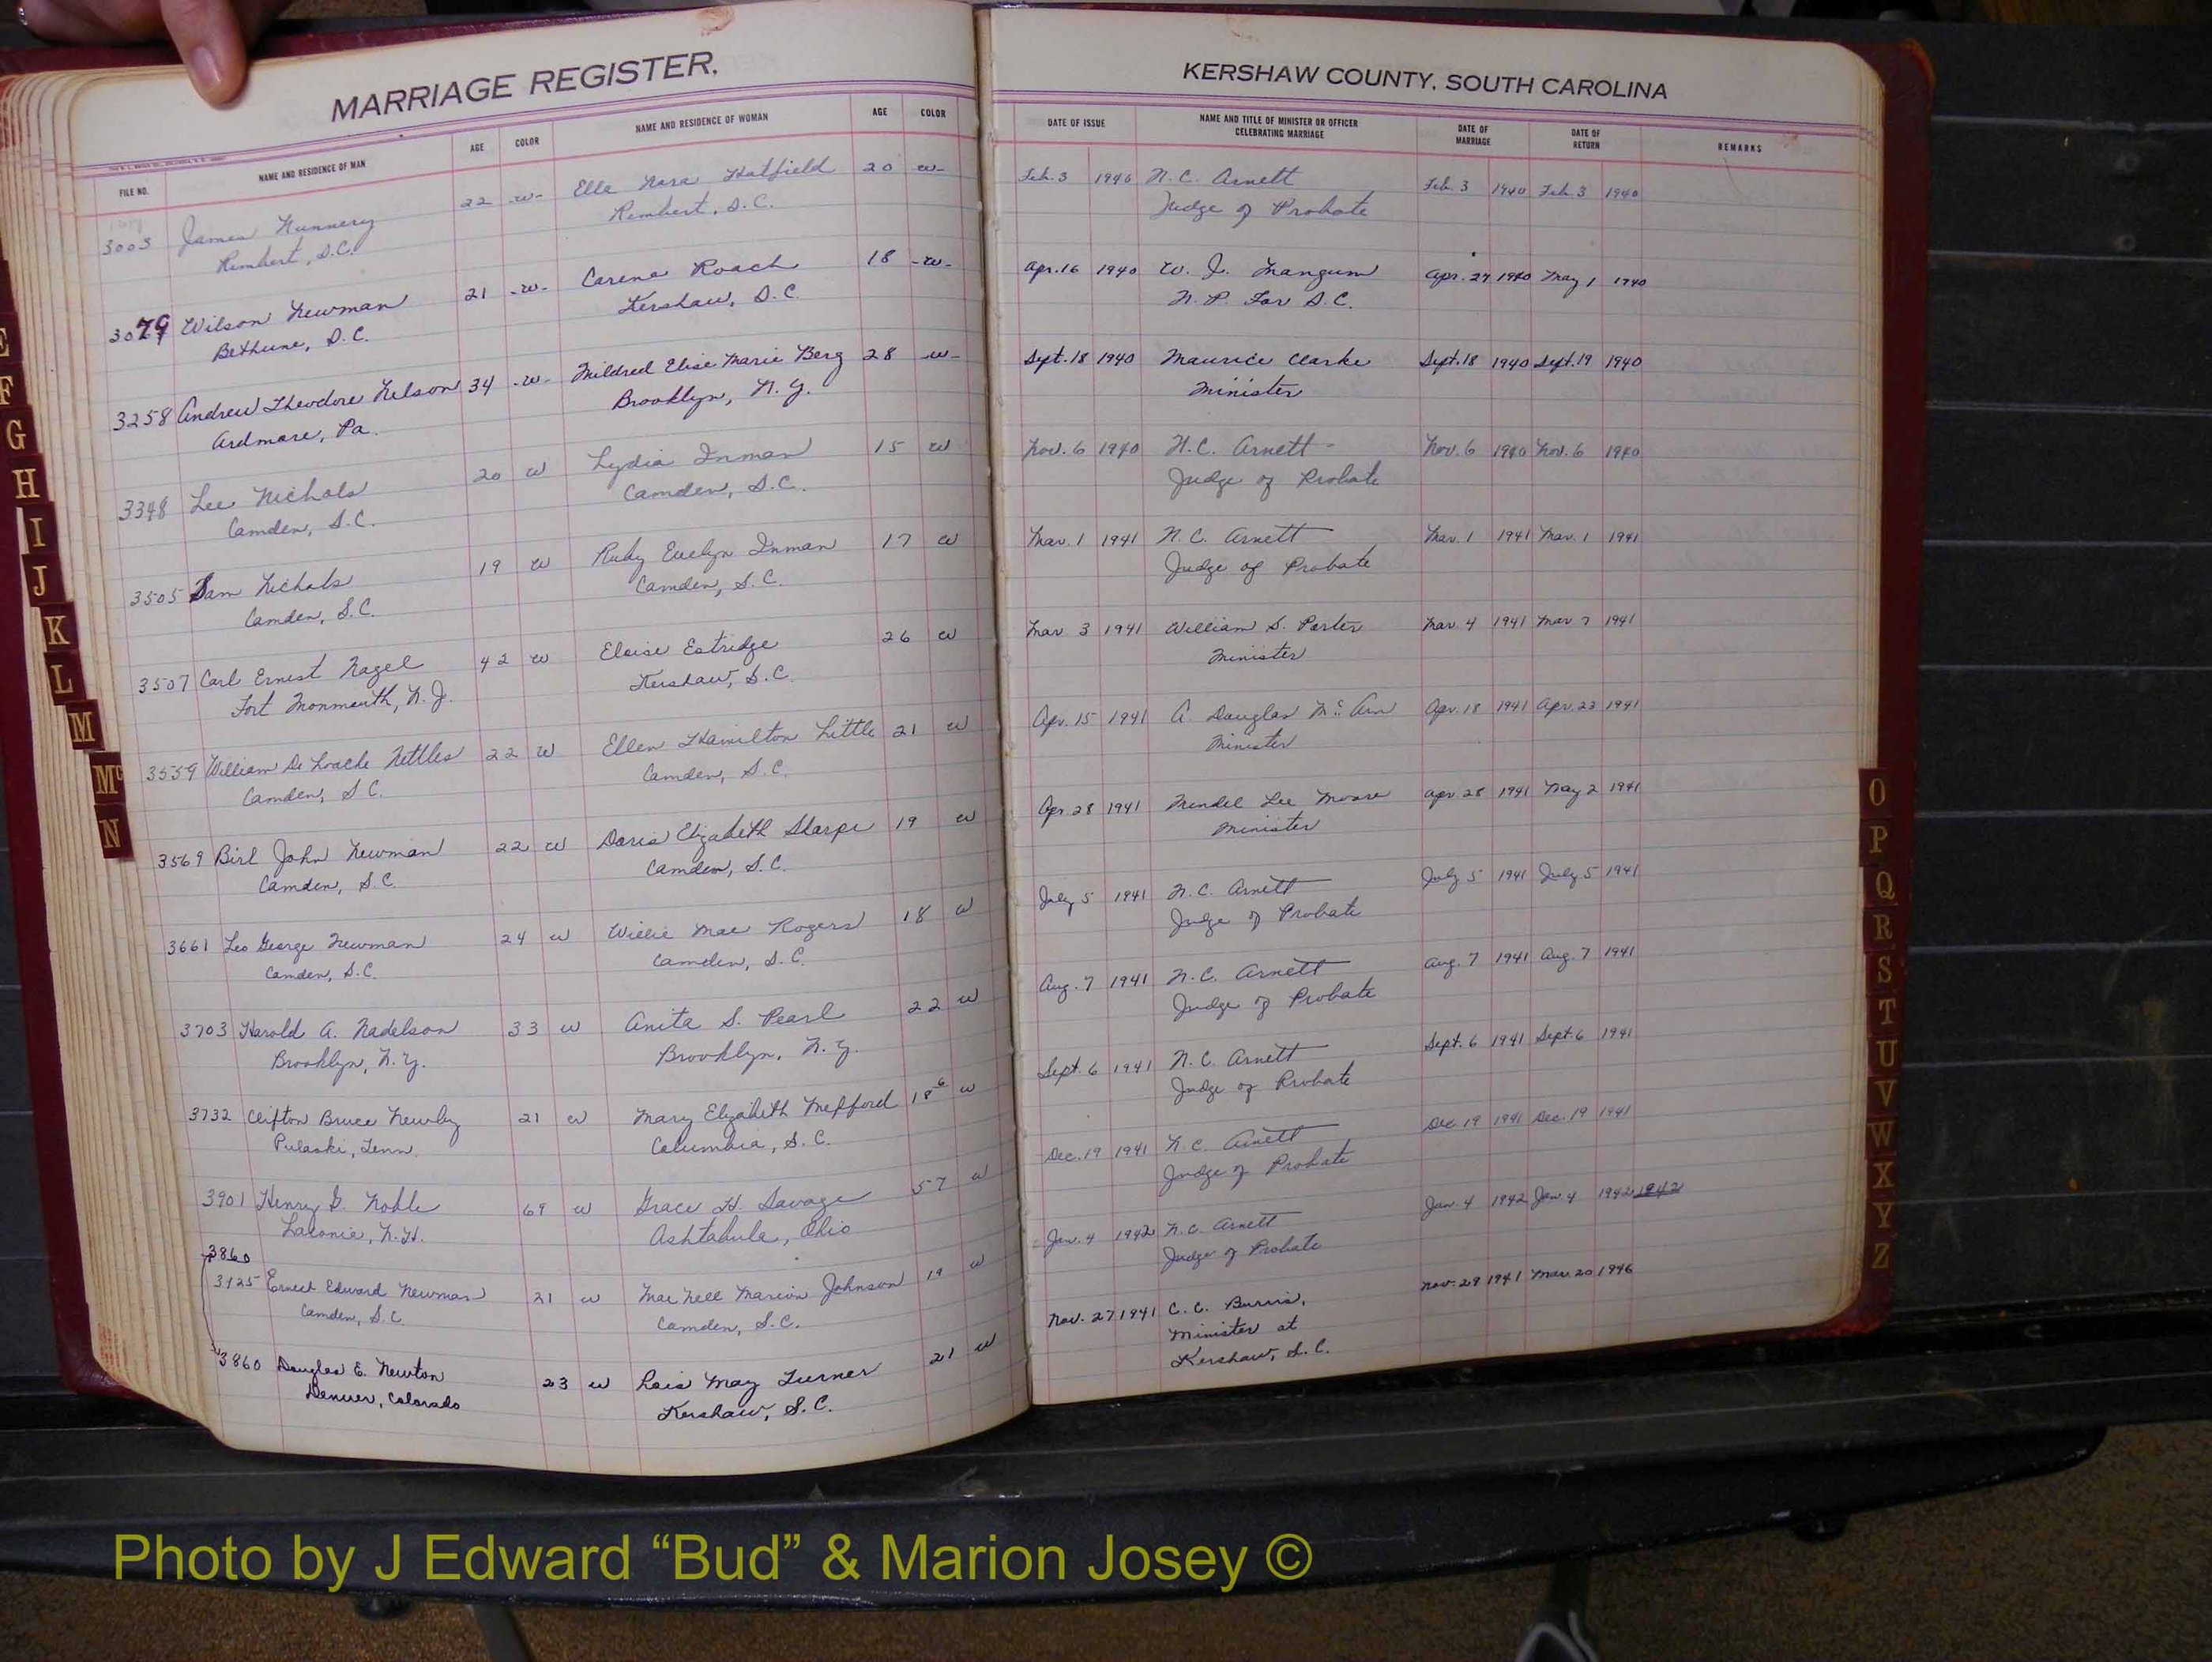 MARRIAGE REGISTER.
FILE NO. NAME AND RESIDENCE OF MAN AGE COLOR NAME AND RESIDENCE OF WOMAN AGE COLOR
3003 James Nunnery 22 -W- Ella Nora Hatfield 20 W-
Rembert, S.C. Rembert, S.C.
3079 Wilson Newman 21 -W- Carene Roach 18 -W-
Bethune, S.C. Kershaw, S.C.
3258 Andrew Theodore Nelson 34 -W- Mildred Elise Marie Berg 28 -W-
Ardmore, Pa. Brooklyn, N.Y.
3348 Lee Nichols 20 W Lydia Inman 15 W
Camden, S.C. Camden, S.C.
3505 Sam Nichols 19 W Ruby Evelyn Inman 17 W
Camden, S.C. Camden, S.C.
3507 Carl Ernest Nagel 42 W Eloise Estridge 26 W
Fort Monmouth, N.J. Kershaw, S.C.
3559 William De Loache Nettles 22 W Ellen Hamilton Little 21 W
Camden, S C. Camden, S.C.
3569 Birl John Newman 22 W Doris Elizabeth Sharpe 19 W
Camden, S.C. Camden, S.C.
3661 Leo George Newman 24 W Willie Mae Rogers 18 W
Camden, S.C. Camden, S.C.
3703 Harold A. Nadelson 33 W Anita S. Pearl 22 W
Brooklyn, N.Y. Brooklyn, N.Y.
3732 Clifton Bruce Newby 21 W Mary Elizabeth Mefford 18 W
Pulaski, Tenn. Columbia, S.C.
3901 Henry Noble 69 W Grace H. Savage 57 W
Laconia, N.H. Ashtabula, Ohio
3860
3925 Ernest Edward Newman 21 W Mae Nell Marion Johnson 19 W
Camden, S.C. Camden, S.C.
3860 Douglas E. Newton 23 W Lois May Turner 21 W
Denver, Colorado Kershaw, S.C.
KERSHAW COUNTY, SOUTH CAROLINA
DATE OF ISSUE NAME AND TITLE OF MINISTER OR OFFICER CELEBRATING MARRIAGE DATE OF MARRIAGE DATE OF RETURN REMARKS
Feb. 3 1940 N.C. Arnett Feb. 3 1940 Feb. 3 1940
Judge of Probate
Apr. 16 1940 W. J. Mangum Apr. 27 1940 May 1 1940
N.P. For S.C.
Sept. 18 1940 Maurice Clarke Sept. 18 1940 Sept. 19 1940
Minister
Nov. 6 1940 N.C. Arnett Nov. 6 1940 Nov. 6 1940
Judge of Probate
Mar. 1 1941 N.C. Arnett Mar. 1 1941 Mar. 1 1941
Judge of Probate
Mar. 3 1941 William S. Porter Mar. 4 1941 Mar 7 1941
Minister
Apr. 15 1941 A. Douglas Apr. 18 1941 Apr. 23 1941
Minister
Apr. 28 1941 Mendel Lee Moore Apr 28 1941 May 2 1941
Minister
July 5 1941 N.C. Arnett July 5 1941 July 5 1941
Judge of Probate
Aug. 7 1941 N.C. Arnett Aug. 7 1941 Aug. 7 1941
Judge of Probate
Sept. 6 1941 N.C. Arnett Sept. 6 1941 Sept. 6 1941
Judge of Probate
Dec. 19 1941 N.C. Arnett Dec. 19 1941 Dec. 19 1941
Judge of Probate
Jan. 4 1942 N.C. Arnett Jan. 4 1942 Jan. 4 1942 1942
Judge of Probate
Nov. 27 1941 C.C. Burris, Nov. 29 1941 Mar. 20 1946
Minister at
Kershaw, S.C.
E
F
G
H
I
J
K
L
M
Mc
N
O
P
Q
R
S
T
U
V
W
X
Y
Z
Photo by J Edward “Bud” & Marion Josey ©